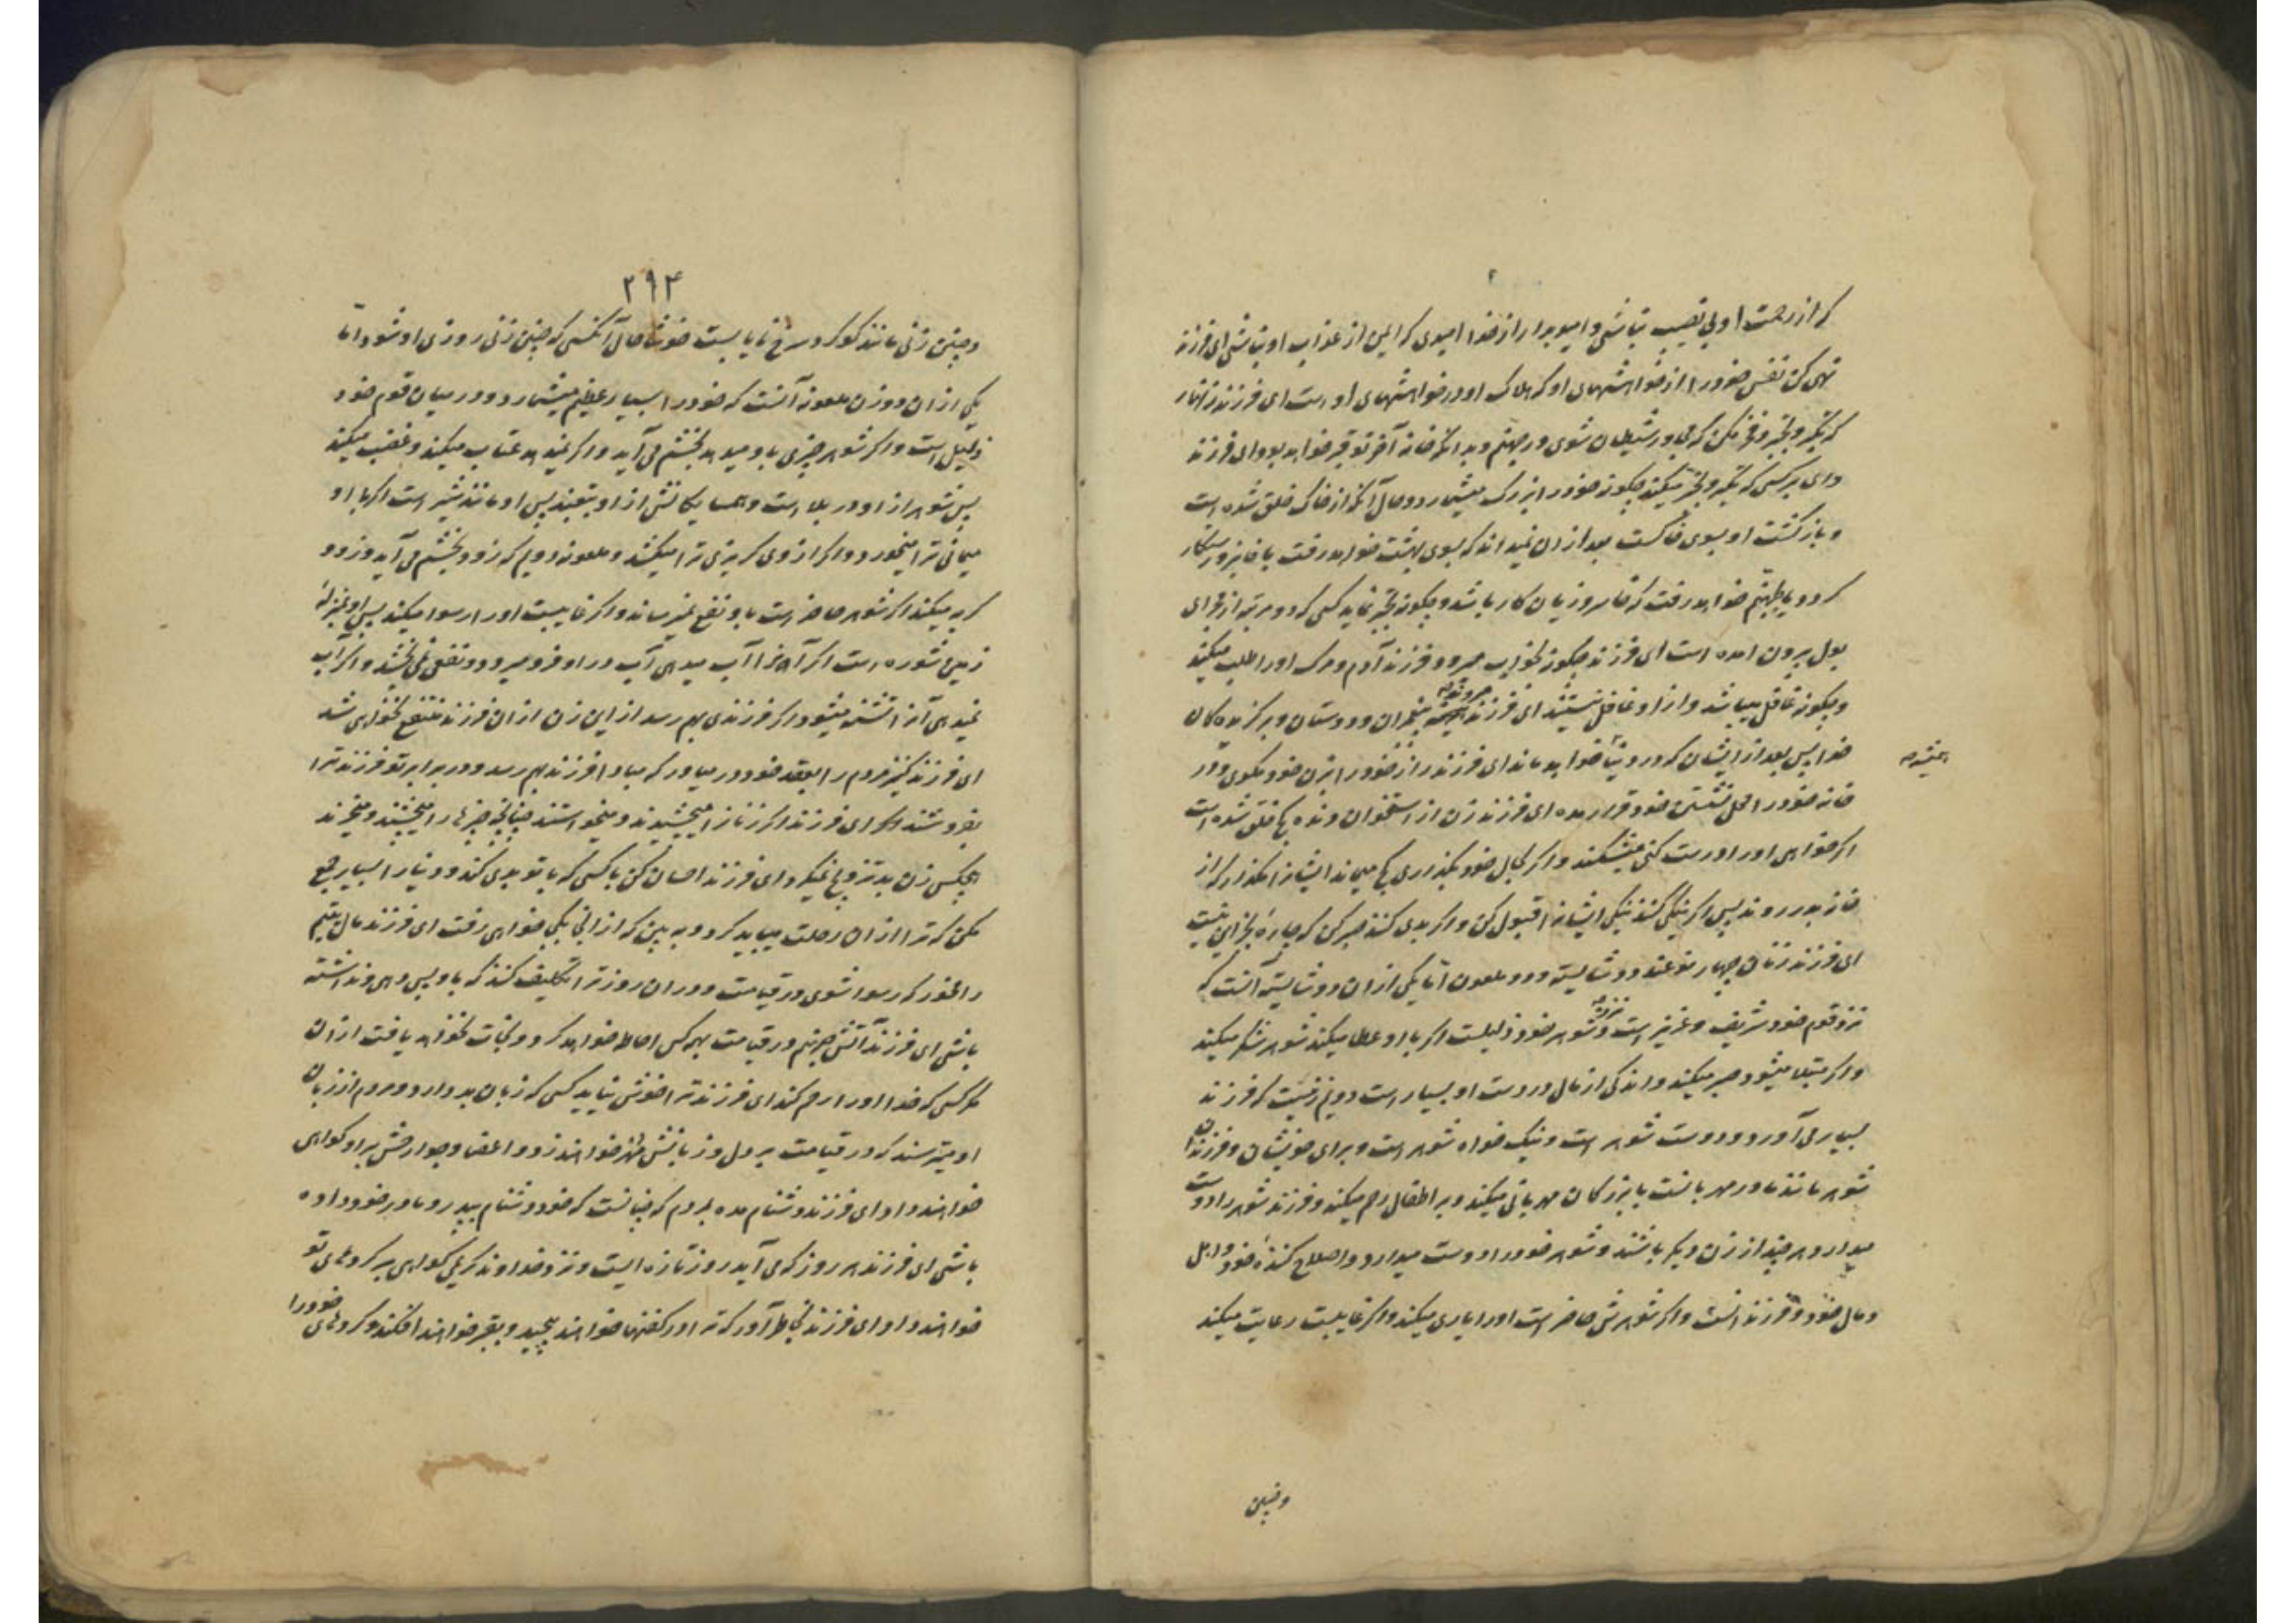 که از رحمت او بی نصیب نباشی و امیدوار از خدا امیدی که ایمن از عذاب او نباشی ای فرزند
نهی کن نفس خود را از خواهشهای او که هلاک او در خواهشهای اوست ای فرزند زنهار
که تکبر و تجبر و فخر مکن که مجاور شیطان شوی در جهنم و بدانکه خانه آخر تو قبر خواهد بود ای فرزند
وای بر کسی که تکبر و تجبر میکند چگونه خود را بزرگ میشمارد و حال آنکه از خاک خلق شده است
و بازگشت او بسوی خاکست بعد از ان نمیداند که بسوی بهشت خواهد رفت یا فایز و رستگار
کردد یا بجهنم خواهد رفت که خاسر و زیان کار باشد و چگونه تجبر نماید کسی که دو مرتبه از مجرای
بول بیرون امده است ای فرزند چگونه بخواب میرود فرزند آدم و مرگ او را طلب میکند
و چگونه غافل میباشد و از او غافل نیستند ای فرزند مردند پیغمبران و دوستان و برگزیده کان
خدا پس بعد از ایشان که در دنیا خواهد ماند ای فرزند راز خود را بزن خود مگوی و در
همیشه
خانه خود را محل نشستن خود قرار مده ای فرزند زن از استخوان دنده کج خلق شده است
اگر خواهی او را درست کنی میشکند و اگر بحال خود بگذاری کج میماند ایشانرا مگذار که از
خانه بدر روند پس اگر نیکی کنند نیکی ایشانرا قبول کن و اگر بدی کنند صبر کن که چارۀ بجز این نیست
ای فرزند زنان چهار نوعند دو شایسته و دو ملعون اما یکی از ان دو شایسته آنست که
نزد قوم خود شریف و عزیز است و نزد شوهر خود ذلیلست اگر با او عطا میکند شوهر شکر میکند
و اگر مبتلا میشود صبر میکند و اندکی از مال در دست او بسیار است دویم زنیست که فرزند
بسیار می آورد و دوست شوهر است و نیک خواه شوهر است و برای خویشان و فرزندان
شوهر مانند مادر مهربانست با بزرگان مهربانی میکند و بر اطفال رحم میکند و فرزند شوهر را دوست
میدارد هرچند از زن دیگر باشند و شوهر خود را دوست میدارد و اصلاح کنندۀ خود و اهل
و مال خود و فرزند انست و اگر شوهرش حاضر است او را یاری میکند و اگر غایبست رعایت میکند
و چنین
۲۹۴
و چنین زنی مانند کوکرد سرخ نایابست خوشا حال آنکسی که چنین زنی روزی او شود اما
یکی از ان دو زن ملعونه آنست که خود را بسیار عظیم میشمارد و در میان قوم خود
ذلیل است و اگر شوهر چیزی باو میدهد بخشم می آید و اگر نمیدهد عتاب میکند و غضب میکند
پس شوهر از او در بلا است و همسایگانش از او بتعبند پس او مانند شیر است اگر با او
میمانی ترا میخورد و اگر از وی گریزی ترا میکشد و ملعونه دویم که زود بخشم می آید و زود
گریه میکند اگر شوهر حاضر است باو نفع نمیرساند و اگر غایبست او را رسوا میکند پس او بمنزلۀ
زمین شوره است اگر آنرا آب میدهی آب در او فرو میرود و نفعی نمی بخشد و اگر آب
نمیدهی آنرا تشنه میشود و اگر فرزندی بهم رسد از این زن از ان فرزند منتفع نخواهی شد
ای فرزند کنیز مردم را بعقد خود در میاور که مبادا فرزند بهم رسد و در برابر تو فرزند ترا
بفروشند ای فرزند اگر زنانرا میچشیدند و میخواستند چنانچه چیزها را میچشند و میخرند
هیچکس زن بد تزویج نمیکرد ای فرزند احسان کن با کسی که با تو بدی کند و دنیا را بسیار جمع
مکن که ترا از ان رحلت میباید کرد و به بین که از اینجا بکجا خواهی رفت ای فرزند مال یتیم
را مخور که رسوا شوی در قیامت و در ان روز ترا تکلیف کنند که باو پس دهی و نداشته
باشی ای فرزند آتش جهنم در قیامت بهر کس احاطه خواهد کرد و نجات نخواهد یافت از ان
مگر کسی که خدا او را رحم کند ای فرزند ترا خوش نیاید کسی که زبان بد دارد و مردم از زبان
او میترسند که در قیامت بر دل و زبانش مهر خواهند زد و اعضا و جوارحش بر او گواهی
خواهند داد ای فرزند دشنام مده بمردم که چنانست که خود دشنام بپدر و مادر خود داده
باشی ای فرزند هر روز که می آید روز تازه ایست و نزد خداوند کریم گواهی بر کردهای تو
خواهند داد ای فرزند بخاطر آور که ترا در کفنها خواهند پیچید و بقبر خواهند افکند و کردهای خود را